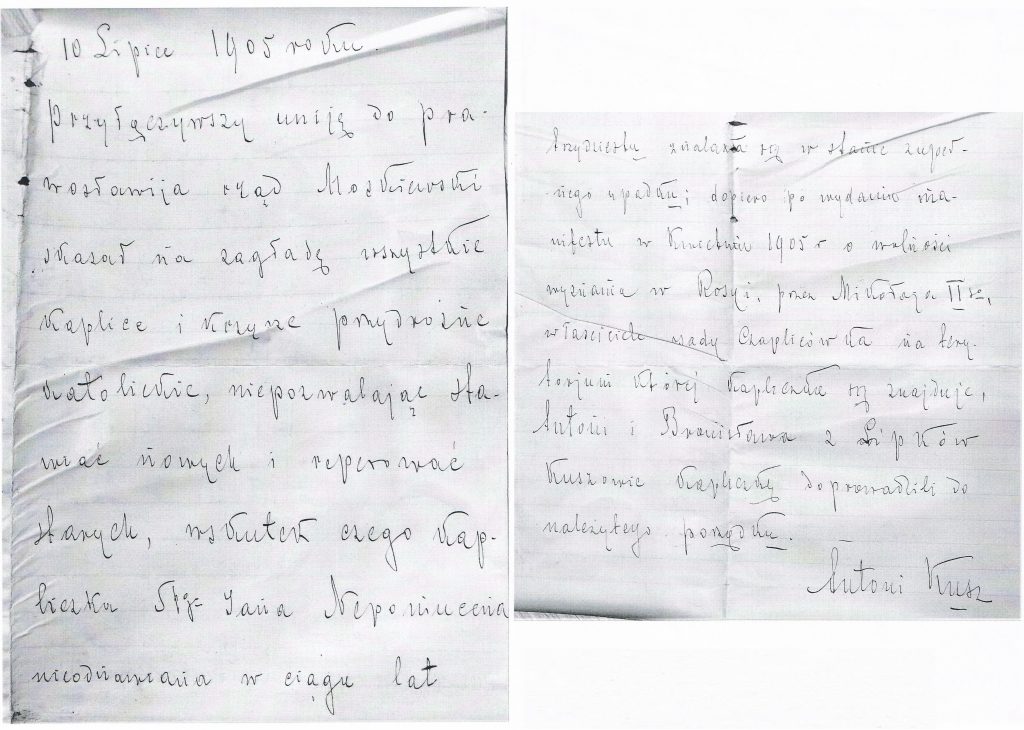 10 Lipca 1905 roku.
Przyłączywszy uniję do pra-
wosławija rząd Moskiewski
skazał na zagładę wszystkie
kaplice i krzyże przydrożne
katolickie, niepozwalając sta-
wiać nowych i reperować
starych, wskutek czego kap-
liczka Śtgo Jana Nepomucena
nieodnawiana w ciągu lat
trzydziestu znalazła się w stanie zupeł-
nego upadku; dopiero po wydaniu ma-
nifestu w Kwietniu 1905 r o wolności
wyznania w Rosyi, przez Mikołaja II go,
właściciele osady Czaplicówka na tery-
torjum której kapliczka się znajduje,
Antoni i Bronisława z Lipków
Kuszowie kapliczkę doprowadzili do
należytego porządku.
Antoni Kusz